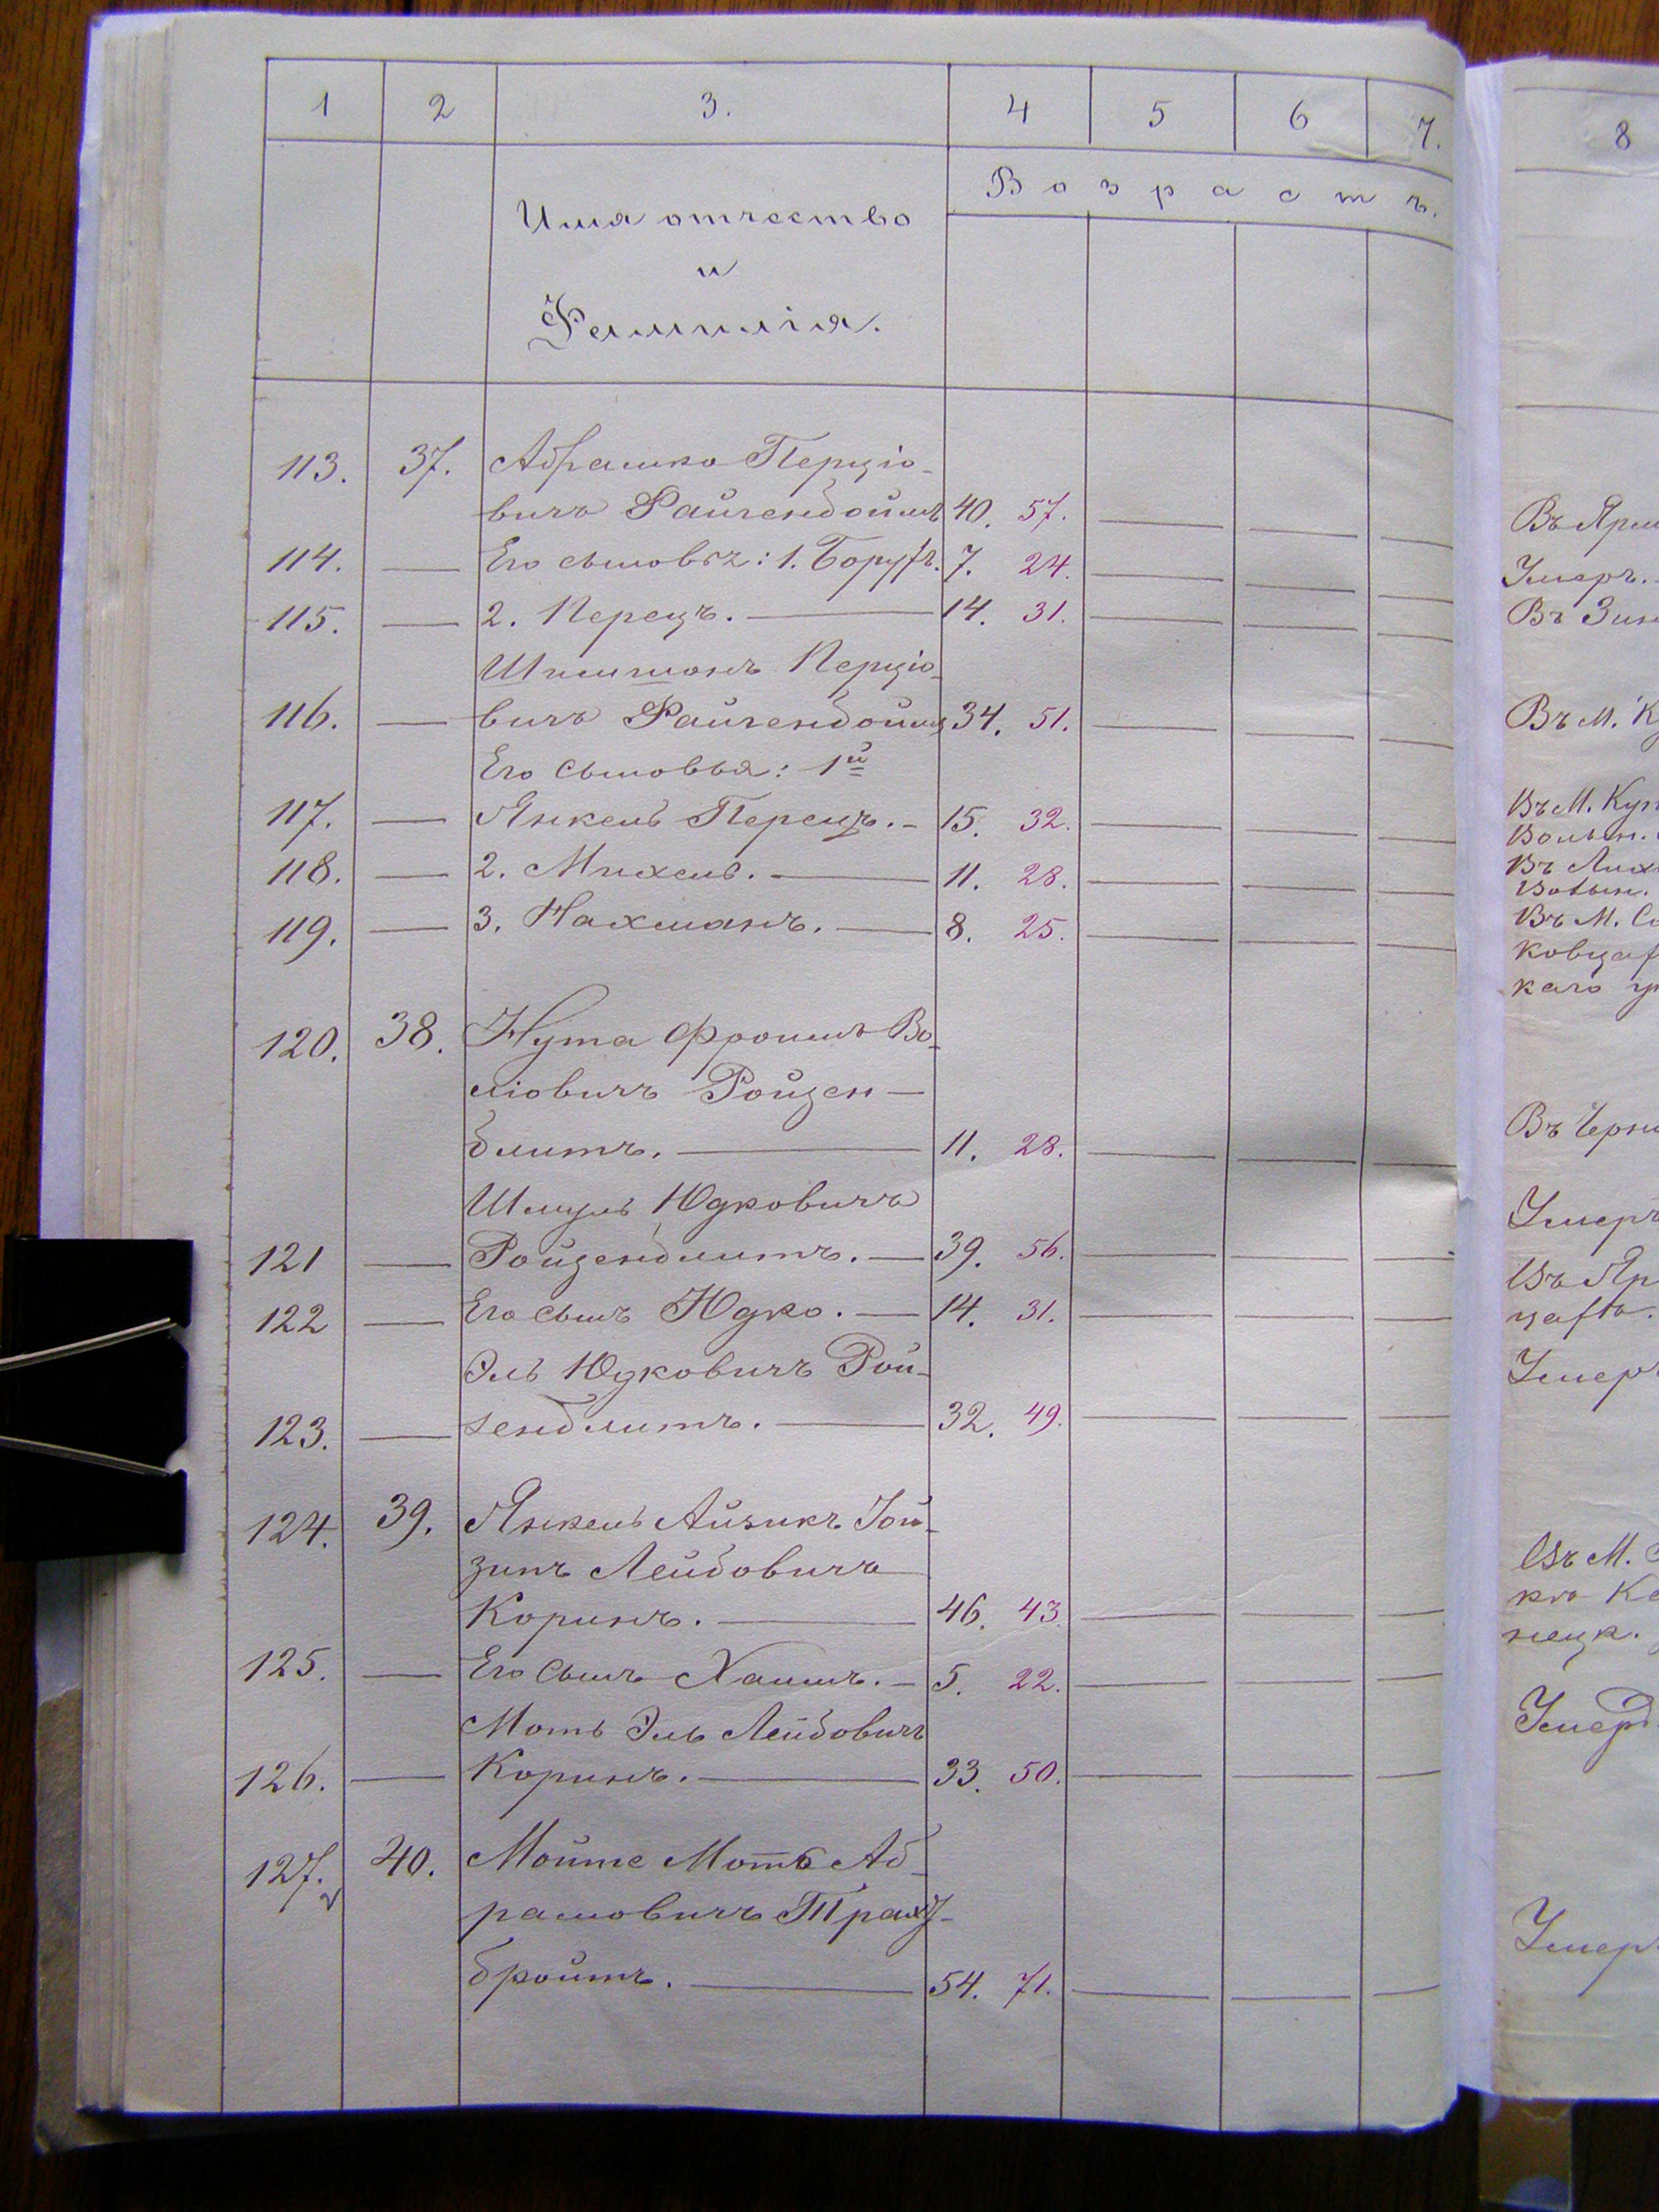 1 2 3. 4 5 6 7. 8
Возрастъ.
Имя отчество
и
Фамилія.
113. 37. Абрашко Перціо-
вичъ Файгенбоймъ 40. 57. Въ Ярм
114. Его сыновья: 1. Борухъ. 7. 24. Умеръ.
115. 2. Перецъ. 14. 31. Въ Зин
Шимшонъ Перціо-
116. вичъ Файгенбоймъ 34. 51. Въ М. К
Его сыновья: 1й
117. Янкель Перецъ. 15. 32. Въ М. Куп
Волын.
118. 2. Михель. 11. 28. Въ Лих
Волын.
119. 3. Нахманъ. 8. 25. Въ М. С
ковцах
каго у
120. 38. Нута Фроимъ Во-
ліовичъ Ройзен-
блитъ. 11. 28. Въ Черн
Шмуль Юдковичъ Умеръ
121 Ройзенблитъ. 39. 56. Въ Яр
122 Его сынъ Юдко. 14. 31. цахъ.
Эль Юдковичъ Рой- Умер
123. зенблитъ. 32. 49.
124. 39. Янкель Айзикъ Іой-
зипъ Лейбовичъ Въ М.
Коринъ. 46. 43. къ Ка
нецк.
125. Его сынъ Хаимъ. 5. 22.
Моть Эль Лейбовичъ Умеръ
126. Коринъ. 33. 50.
127. 40. Мойше Моть Аб-
рамовичъ Трахт- Умер
бройтъ. 54. 71.